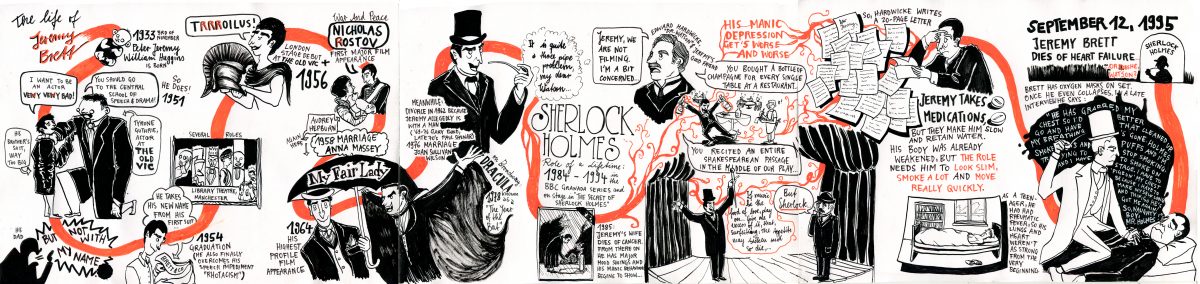 The life of
Jeremy
Brett
1933 3RD OF
NOVEMBER
Peter Jeremy
William Huggins
IS BORN
I WANT TO BE
AN ACTOR
VEWY VEWY BAD!
YOU SHOULD GO
TO THE CENTRAL
SCHOOL OF
SPEECH & DRAMA!
SO HE
DOES!
1951
HE
BROTHER'S
SUIT,
WAY
TOO BIG
TYRONE
GUTHRIE,
ACTOR
AT
THE
OLD
VIC
HE
DAD
BUT NOT WITH
MY NAME
SEVERAL ROLES
LIBRARY THEATRE,
MANCHESTER
HE TAKES
HIS NEW NAME
FROM HIS
FIRST SUIT
1954
GRADUATION
(HE ALSO FINALLY
OVERCOMES HIS
SPEECH IMPEDIMENT
"RHOTACISM")
TRRROILUS!
LONDON
STAGE DEBUT
AT THE OLD VIC +
1956
War And Peace
NICHOLAS
ROSTOV
FIRST MAJOR FILM
APPEARANCE
AUDREY
HEPBURN
AGAIN
HERE
1958 MARRIAGE
ANNA MASSEY
My Fair Lady
1964
HIS
HIGHEST
PROFILE
FILM
APPEARANCE
MEANWHILE:
DIVORCE IN 1962 BECAUSE
JEREMY ALLEGEDLY IS
WITH A MAN
1976 MARRIAGE
JOAN SULLIVAN
WILSON
DRACULA
1978
"The Year of the
Bat"
It is quite
a three pipe
problem,
my dear
Watson.
SHERLOCK
HOLMES
Role of a lifetime:
1984 - 1994 in
BBC GRANADA SERIES and
on stage in "THE SECRET OF
SHERLOCK HOLMES"
1985:
JEREMY'S WIFE
DIES OF CANCER.
FROM THERE ON
HE HAS MAJOR
MOOD SWINGS AND
HIS MANIC BEHAVIOUR
BEGINS TO SHOW...
JEREMY, WE
ARE NOT
FILMING.
I'M A BIT
CONCERNED.
EDWARD HARDWICKE
HIS MANIC
DEPRESSION
GETS WORSE
AND WORSE
YOU BOUGHT A BOTTLE OF
CHAMPAGNE FOR EVERY SINGLE
TABLE AT A RESTAURANT.
YOU RECITED AN ENTIRE
SHAKESPEAREAN PASSAGE
IN THE MIDDLE OF OUR PLAY...
If music be
the food of love, play
on. Give me
excess of it, that
surfeiting, the appetite
may sicken and
so die.
But
Sherlock
SO, HARDWICKE WRITES
A 20-PAGE LETTER
JEREMY TAKES
MEDICATIONS
BUT THEY MAKE HIM SLOW
AND RETAIN WATER.
HIS BODY WAS ALREADY
WEAKENED, BUT THE ROLE
NEEDS HIM TO LOOK SLIM,
SMOKE A LOT AND MOVE
REALLY QUICKLY.
AS A TEEN-
AGER, HE
HAD HAD
RHEUMATIC
FEVER, SO HIS
LUNGS AND
HEART
WEREN'T
AS STRONG
FROM THE
VERY
BEGINNING
SEPTEMBER 12, 1995
JEREMY BRETT
DIES OF HEART FAILURE
SHERLOCK
HOLMES
DR. WATSON
BRETT HAS OXYGEN MASKS ON SET.
ONCE HE EVEN COLLAPSES. IN A LATE
INTERVIEW HE SAYS: